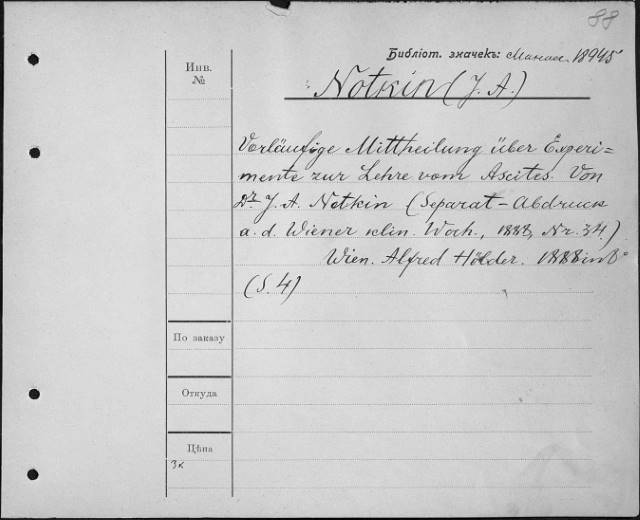 88
Библіот. значекъ: 18945
Инв.
№
Notkin (J. A.)
Vorläufige Mittheilung über Experi=
mente zur Lehre vom Ascites. Von
Dr J. A. Notkin (Separat-Abdruck
a. d. Wiener klin. Woch., 1888, Nr. 34.)
Wien. Alfred Hölder. 1888 in 8°
(S. 4)
По заказу
Откуда
Цѣна
3к